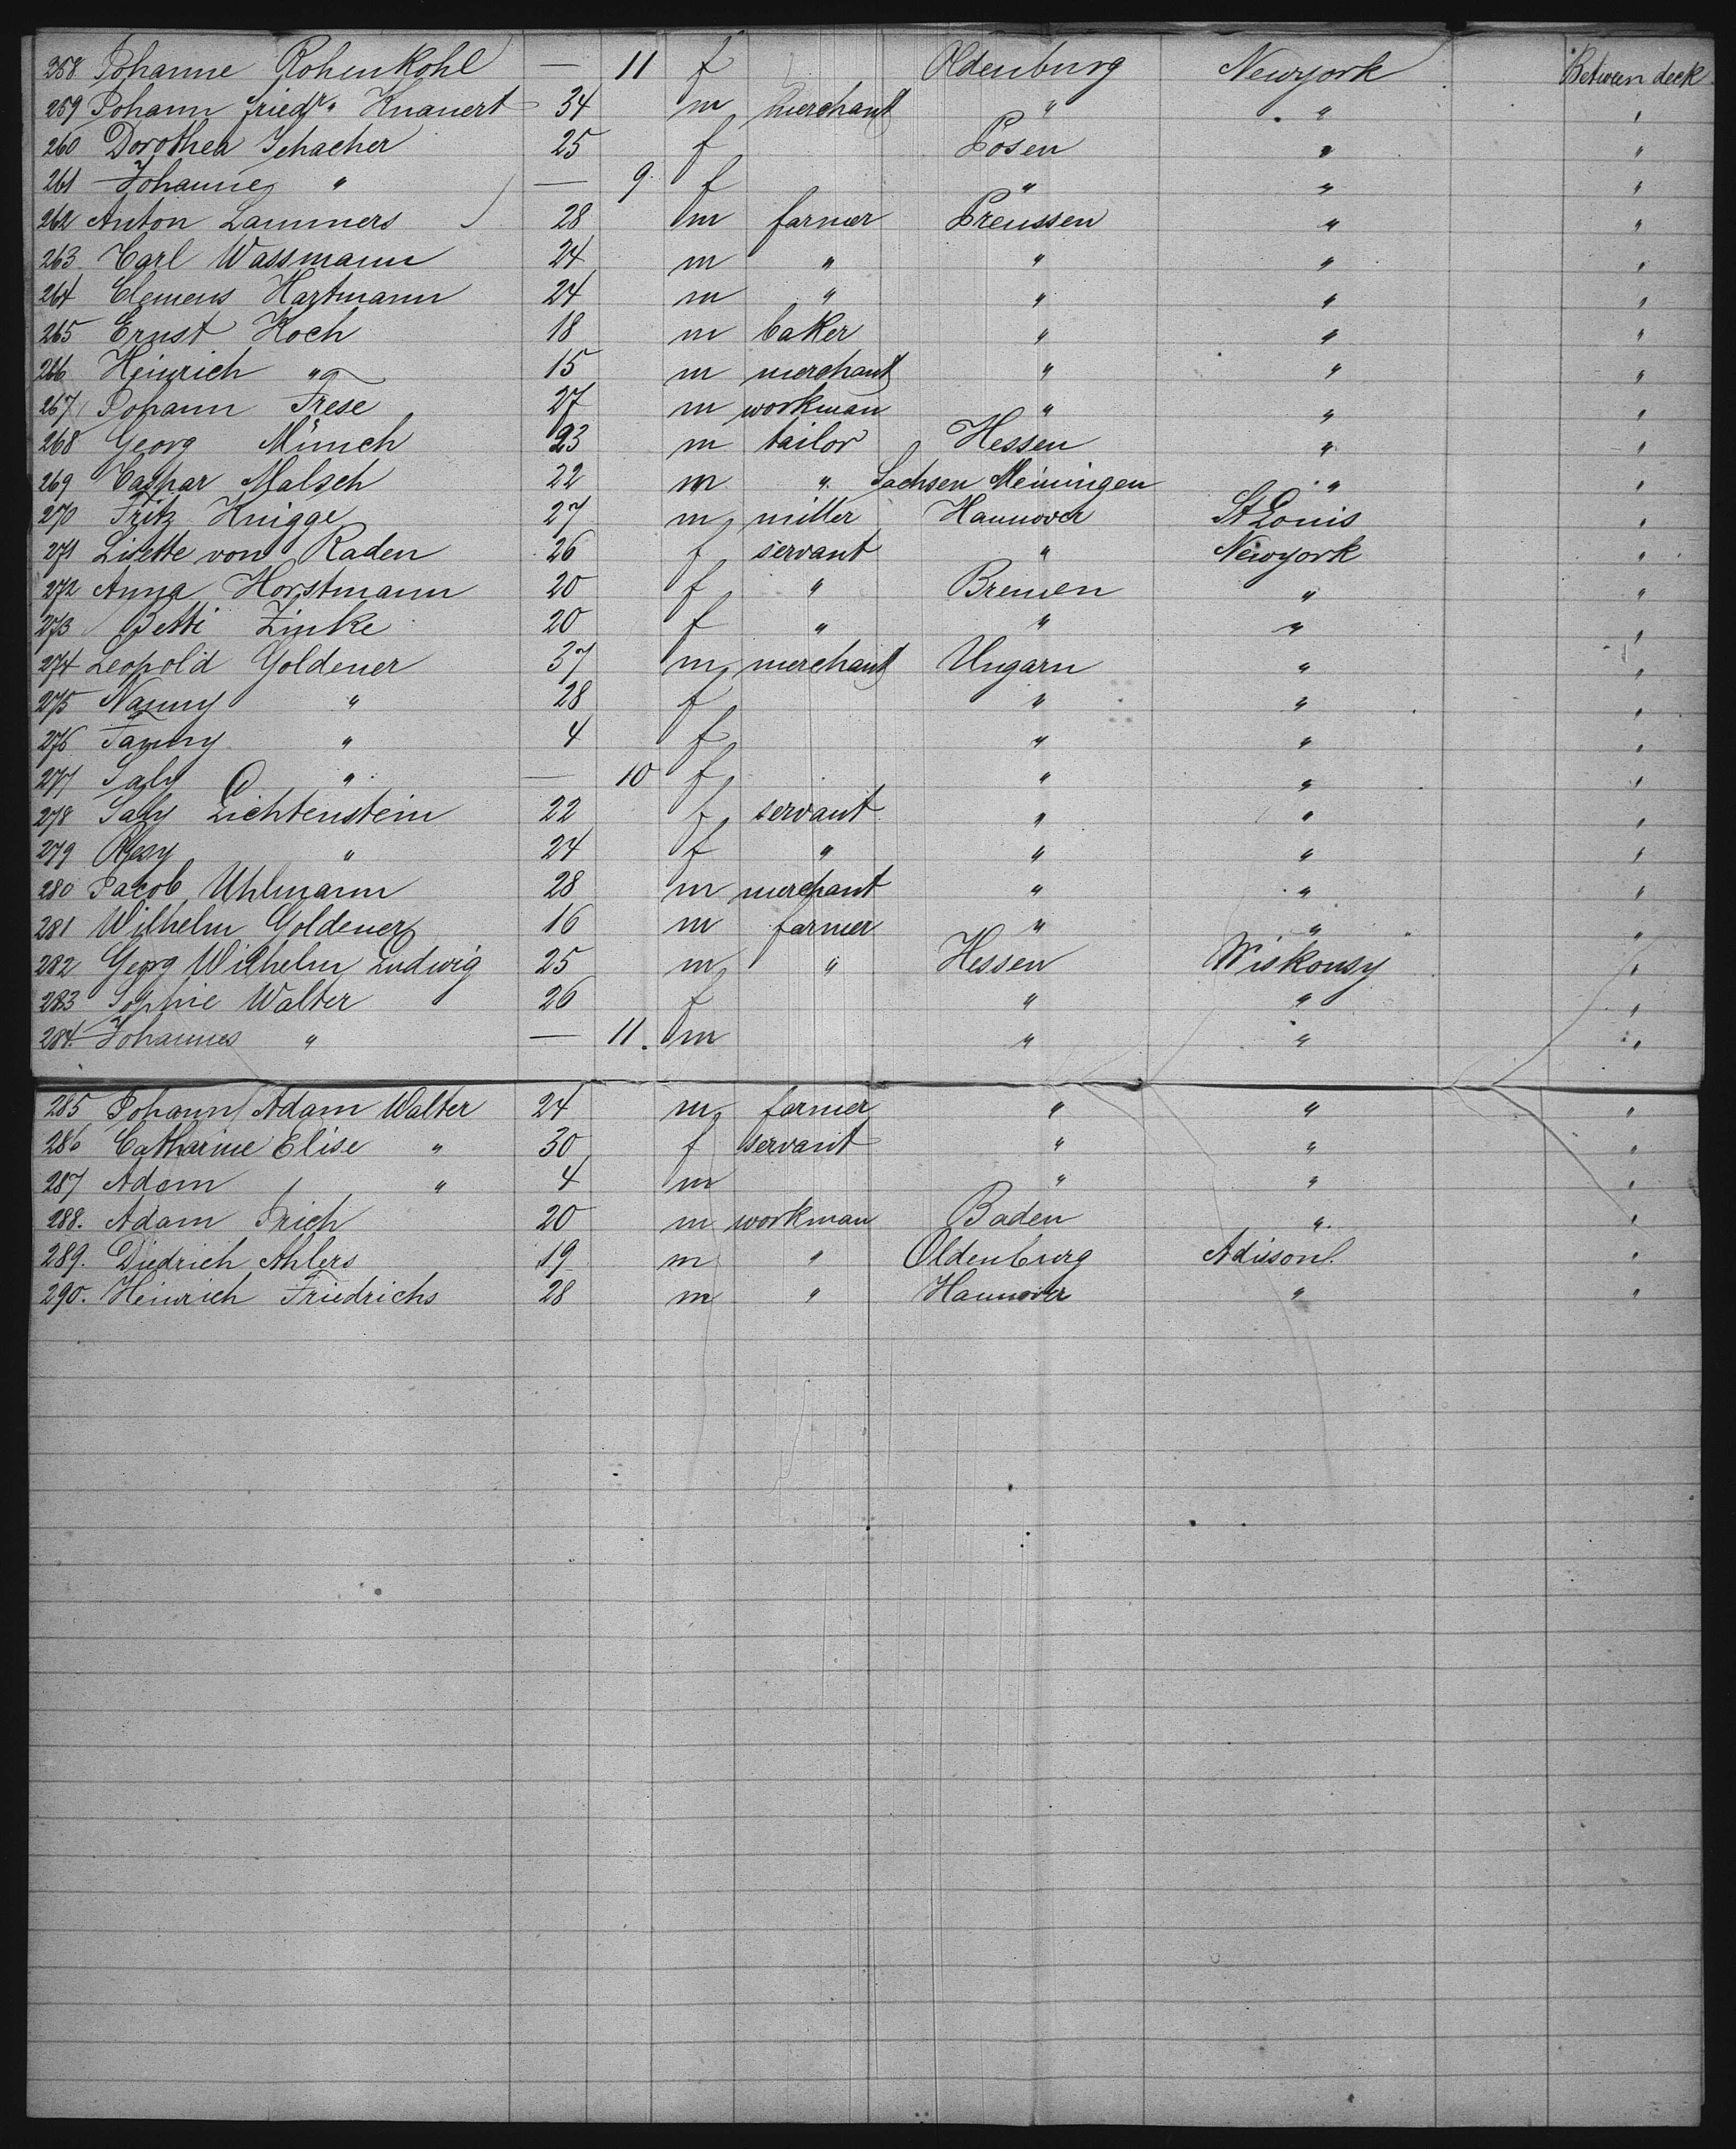 258 Johanne Rohenkohl — 11 f Oldenburg Newyork Between deck.
259 Johann Friedr. Knauert 34 m merchant " " "
260 Dorothea Schacher 25 f Posen " "
261 Johanne " — 9. f " " "
262 Anton Lammers 28 m farmer Preussen " "
263 Carl Wassmann 24 m " " " "
264 Clemens Hartmann 24 m " " " "
265 Ernst Koch 18 m baker " " "
266 Heinrich " 15 m merchant " " "
267 Johann Frese 27 m workman " " "
268 Georg Münch 23 m tailor Hessen " "
269 Caspar Malsch 22 m " Sachsen Meiningen " "
270 Fritz Knigge 27 m miller Hannover St Louis "
271 Lisette von Raden 26 f servant " Newyork "
272 Anna Horstmann 20 f " Bremen " "
273 Betti Zinke 20 f " " " "
274 Leopold Goldener 37 m merchant Ungarn " "
275 Nanny " 28 f " " "
276 Fanny " 4 f " " "
277 Saly " — 10 f " " "
278 Saly Lichtenstein 22 f servant " " "
279 Resy " 24 f " " " "
280 Jacob Uhlmann 28 m merchant " " "
281 Wilhelm Goldener 16 m farmer " " "
282 Georg Wilhelm Ludwig 25 m " Hessen Wiskonsy "
283 Sophie Walter 26 f " " "
284. Johannes " — 11. m " " "
285 Johann Adam Walter 24 m farmer " " "
286 Catharine Elise " 30 f servant " " "
287 Adam " 4 m " " "
288. Adam 20 m workman Baden " "
289. Diedrich Ahlers 19 m " Oldenburg Adisson. "
290. Heinrich Friedrichs 28 m " Hannover " "